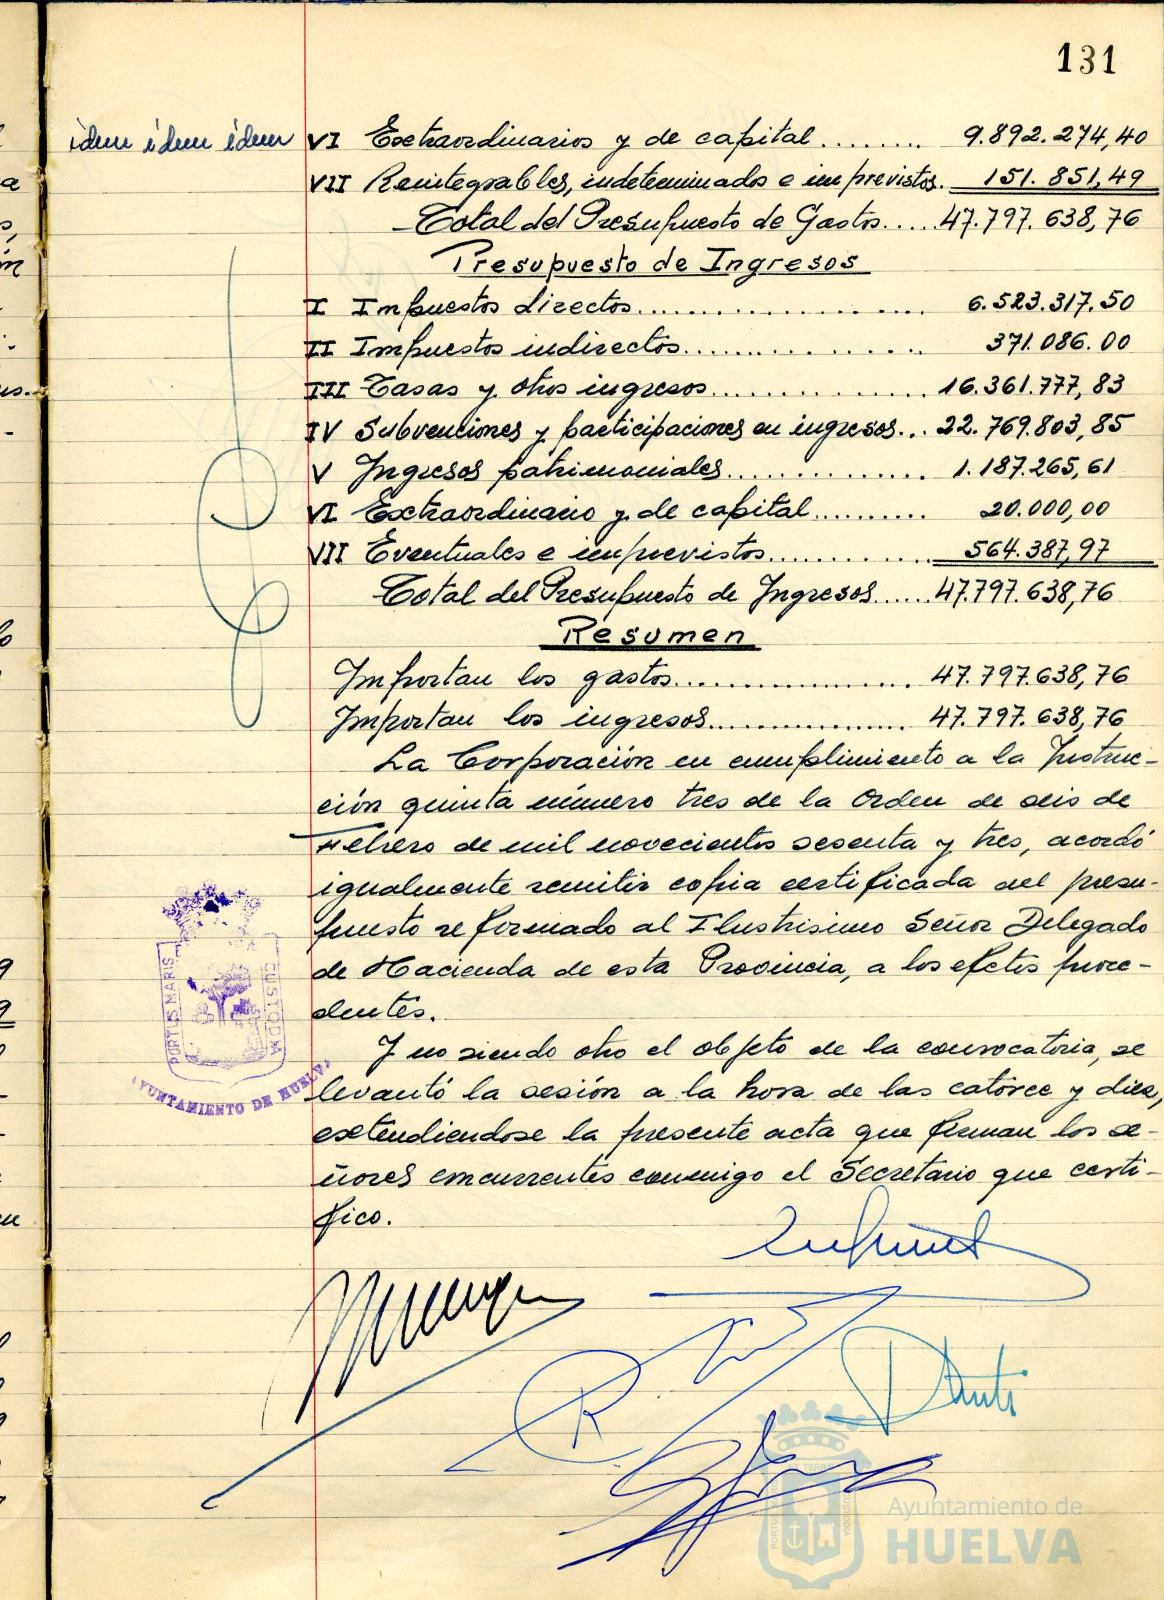 131
idem idem idem VI Extraordinarios y de capital........ 9.892.274,40
VII Reintegrables, indeterminados e imprevistos. 151.851,49
Total del Presupuesto de Gastos..... 47.797.638,76
Presupuesto de Ingresos
I Impuestos directos.................... 6.523.317.50
II Impuestos indirectos................. 371.086.00
III Tasas y otros ingresos............... 16.361.777,83
IV Subvenciones y participaciones en ingresos... 22.769.803,85
V Ingresos patrimoniales............... 1.187.265,61
VI Extraordinario y de capital......... 20.000,00
VII Eventuales e imprevistos............ 564.387,97
Total del Presupuesto de Ingresos...... 47.797.638,76
Resumen
Importan los gastos.................. 47.797.638,76
Importan los ingresos................ 47.797.638,76
La Corporación en cumplimiento a la Instruc-
ción quinta número tres de la Orden de seis de
Febrero de mil novecientos sesenta y tres, acordó
igualmente remitir copia certificada del presu-
puesto reformado al Ilustrisimo Señor Delegado
de Hacienda de esta Provincia, a los efectos proce-
dentes.
Y no siendo otro el objeto de la convocatoria, se
levantó la sesión a la hora de las catorce y diez,
extendiendose la presente acta que firman los se-
ñores concurrentes conmigo el Secretario que certi-
fico.
PORTUS MARIS CUSTODIA
AYUNTAMIENTO DE HUELVA
Ayuntamiento de
HUELVA